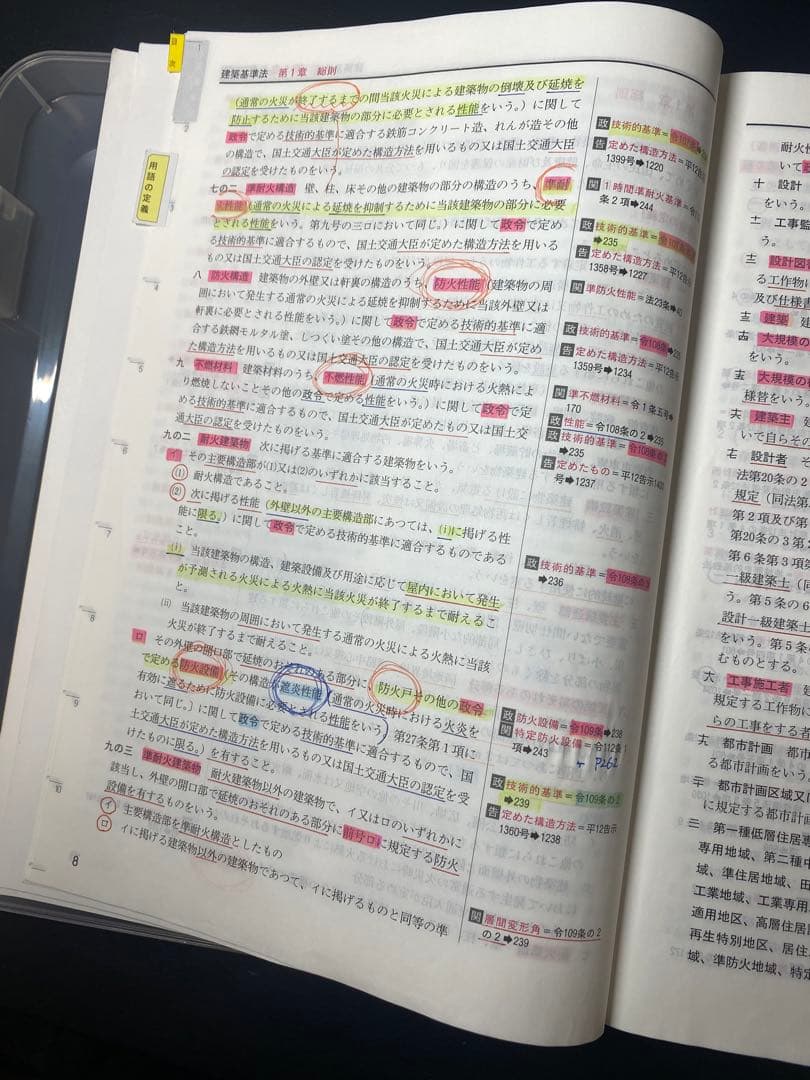 目次
1
2
4
5
6
7
8
9
10
用語の定義
建築基準法 第1章 総則
(通常の火災が終了するまでの間当該火災による建築物の倒壊及び延焼を
防止するために当該建築物の部分に必要とされる性能をいう。)に関して
政令で定める技術的基準に適合する鉄筋コンクリート造、れんが造その他
の構造で、国土交通大臣が定めた構造方法を用いるもの又は国土交通大臣
の認定を受けたものをいう。
七の二 準耐火構造 壁、柱、床その他の建築物の部分の構造のうち、準耐
火性能(通常の火災による延焼を抑制するために当該建築物の部分に必要
とされる性能をいう。第九号の三ロにおいて同じ。)に関して政令で定め
る技術的基準に適合するもので、国土交通大臣が定めた構造方法を用いる
もの又は国土交通大臣の認定を受けたものをいう。
八 防火構造 建築物の外壁又は軒裏の構造のうち、防火性能(建築物の周
囲において発生する通常の火災による延焼を抑制するために当該外壁又は
軒裏に必要とされる性能をいう。)に関して政令で定める技術的基準に適
合する鉄網モルタル塗、しつくい塗その他の構造で、国土交通大臣が定め
た構造方法を用いるもの又は国土交通大臣の認定を受けたものをいう。
九 不燃材料 建築材料のうち、不燃性能(通常の火災時における火熱によ
り燃焼しないことその他の政令で定める性能をいう。)に関して政令で定
める技術的基準に適合するもので、国土交通大臣が定めたもの又は国土交
通大臣の認定を受けたものをいう。
九の二 耐火建築物 次に掲げる基準に適合する建築物をいう。
イ その主要構造部が(1)又は(2)のいずれかに該当すること。
(1) 耐火構造であること。
(2) 次に掲げる性能(外壁以外の主要構造部にあつては、(i)に掲げる性
能に限る。)に関して政令で定める技術的基準に適合するものである
こと。
(i) 当該建築物の構造、建築設備及び用途に応じて屋内において発生
が予測される火災による火熱に当該火災が終了するまで耐えるこ
と。
(ii) 当該建築物の周囲において発生する通常の火災による火熱に当該
火災が終了するまで耐えること。
ロ その外壁の開口部で延焼のおそれのある部分に、防火戸その他の政令
で定める防火設備(その構造が遮炎性能(通常の火災時における火炎を
有効に遮るために防火設備に必要とされる性能をいう。第27条第1項に
おいて同じ。)に関して政令で定める技術的基準に適合するもので、国
土交通大臣が定めた構造方法を用いるもの又は国土交通大臣の認定を受
けたものに限る。)を有すること。
九の三 準耐火建築物 耐火建築物以外の建築物で、イ又はロのいずれかに
該当し、外壁の開口部で延焼のおそれのある部分に前号ロに規定する防火
設備を有するものをいう。
イ 主要構造部を準耐火構造としたもの
ロ イに掲げる建築物以外の建築物であつて、イに掲げるものと同等の準
8
政 技術的基準=令107条
告 定めた構造方法=平12告示
1399号➡1220
関 1時間準耐火基準
条2項➡244
政 技術的基準=令107条の2
➡235
告 定めた構造方法=平12告示
1358号➡1227
関 準防火性能=法23条➡40
政 技術的基準=令108条➡235
告 定めた構造方法=平12告示
1359号➡1234
関 準不燃材料=令1条五号➡
170
政 性能=令108条の2➡235
政 技術的基準=令108条の2
➡235
告 定めたもの=平12告示1400
号➡1237
政 技術的基準=令108条の3
➡236
政 防火設備=令109条➡238
関 特定防火設備=令112条1
項➡243
→ P262
政 技術的基準=令109条の2
➡239
告 定めた構造方法=平12告示
1360号➡1238
関 層間変形角=令109条の2
の2➡239
耐火性
いて
十 設計
をいう。
十一 工事監
う。
十二 設計図書
る工作物に
及び仕様書
十三 建築
十四 大規模の
をいう。
十五 大規模の
様替をいう。
十六 建築主
いで自らその
十七 設計者 そ
法第20条の2
規定(同法第
第2項及び第
第20条の3第
第6条第3項第
一級建築士(同
う。第5条の6
設計一級建築士
をいう。第5条
むものとする。
十八 工事施工者
規定する工作物に
らの工事をする者
十九 都市計画 都市計
る都市計画をいう。
二十 都市計画区域又は
に規定する都市計画
二十一 第一種低層住居専
専用地域、第二種中
域、準住居地域、田
工業地域、工業専用
適用地区、高層住居
再生特別地区、居住
域、準防火地域、特定